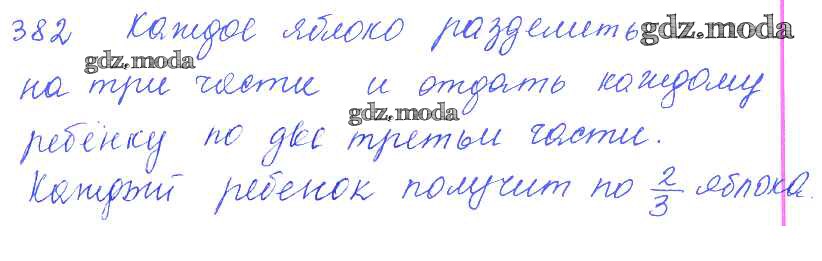 382 Каждое яблоко разделить gdz.moda
gdz.moda
на три части и отдать каждому
gdz.moda
ребёнку по две третьи части.
Каждый ребенок получит по 2/3 яблока.